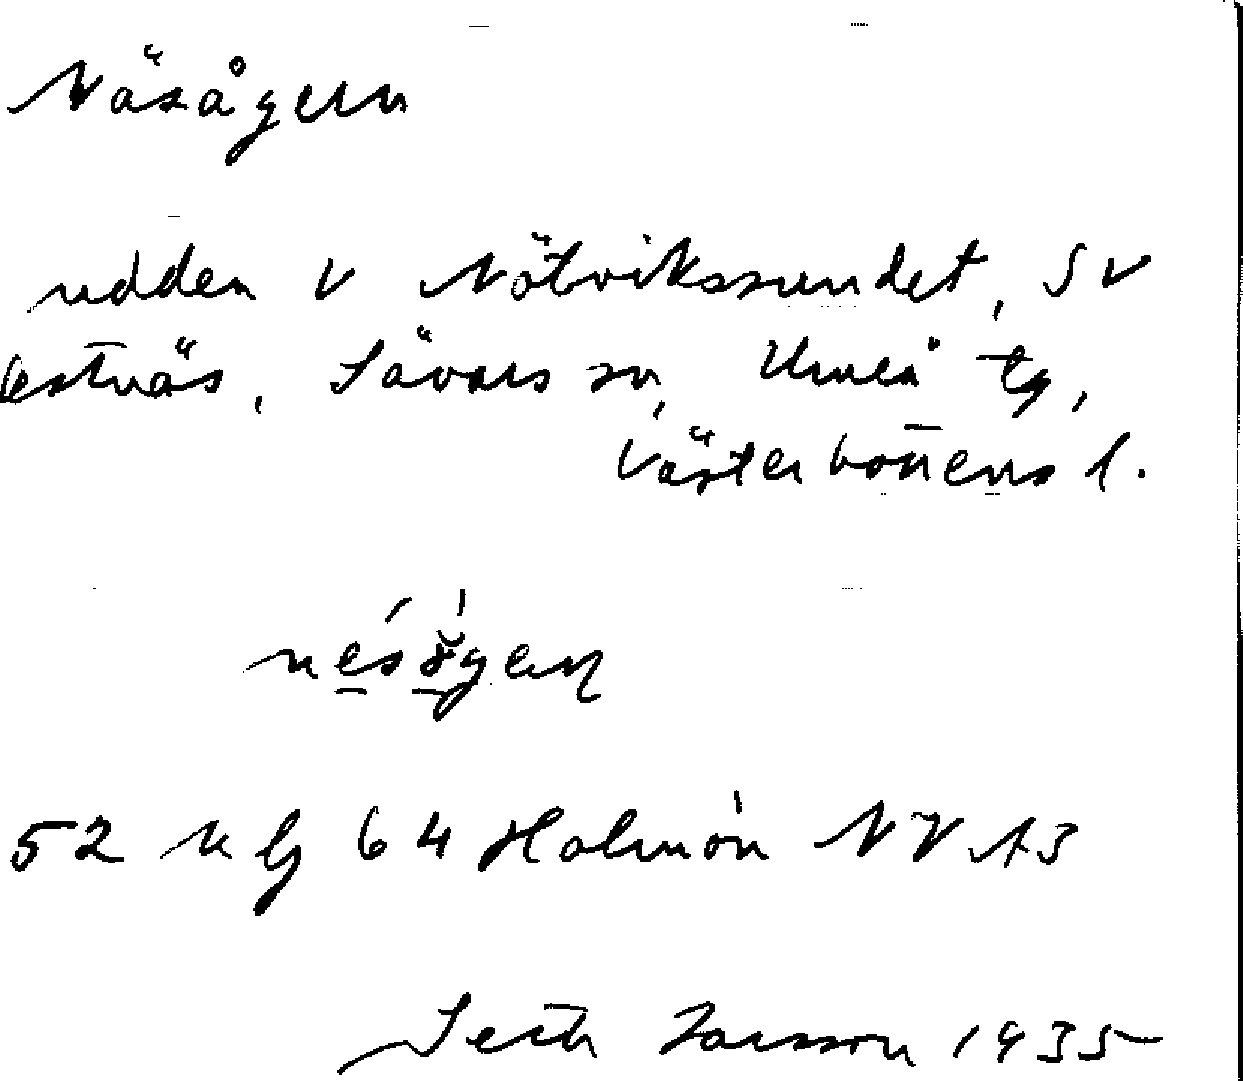 Näsågern
udden V Nötvikssundet, SV
Ostnäs, Sävars sn, Umeå tg,
Västerbottens l.
52 Holmön NV A3
Seth Larsson 1935